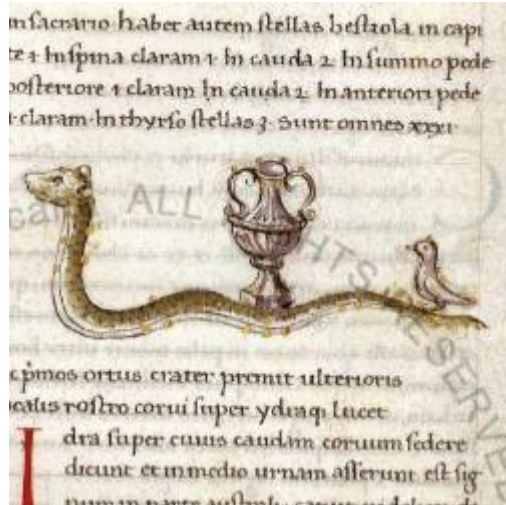 in sacrario. haber autem stellas bestiola. in capi
te 1. In spina claram 1. In cauda 2. In summo pede
posteriore 1 claram In cauda 2. In anteriori pede
1. claram. In thyrso stellas 3. Sunt omnes xxxi.
ALL RIGHTS RESERVED
pmos ortus crater premit ulterioris
rostro corui super ydraq; lucet
I dra super cuius caudam coruum sedere
dicunt et in medio urnam asserunt est sig
num in parte